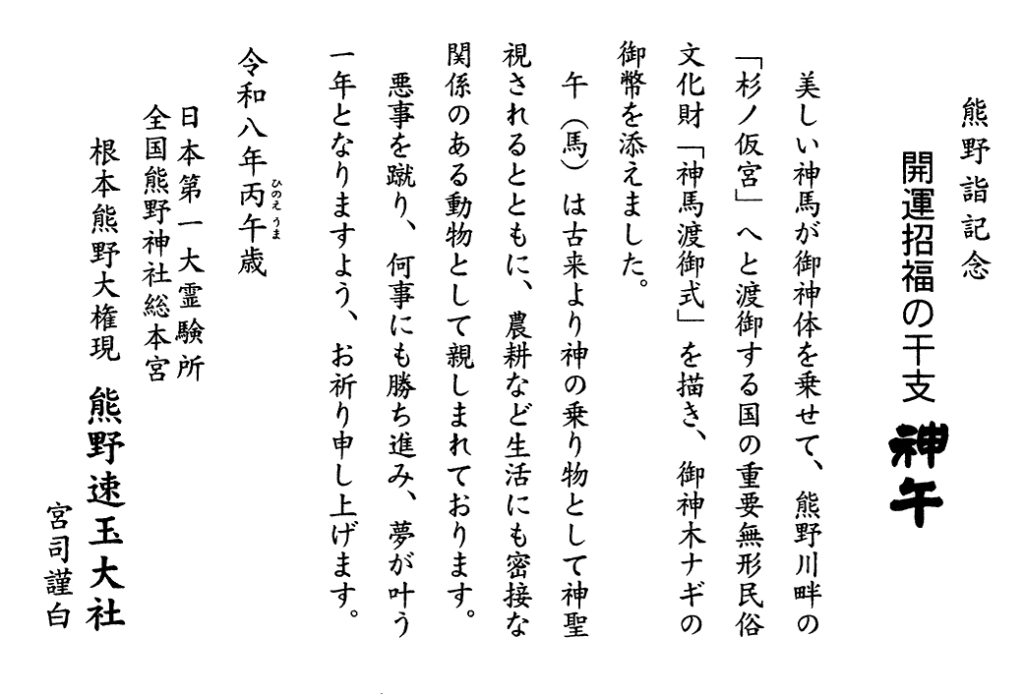 熊野詣記念
開運招福の干支 神午
美しい神馬が御神体を乗せて、熊野川畔の
「杉ノ仮宮」へと渡御する国の重要無形民俗
文化財「神馬渡御式」を描き、御神木ナギの
御幣を添えました。
午(馬)は古来より神の乗り物として神聖
視されるとともに、農耕など生活にも密接な
関係のある動物として親しまれております。
悪事を蹴り、何事にも勝ち進み、夢が叶う
一年となりますよう、お祈り申し上げます。
令和八年丙午歳
ひのえ うま
日本第一大霊験所
全国熊野神社総本宮
根本熊野大権現 熊野速玉大社
宮司謹白